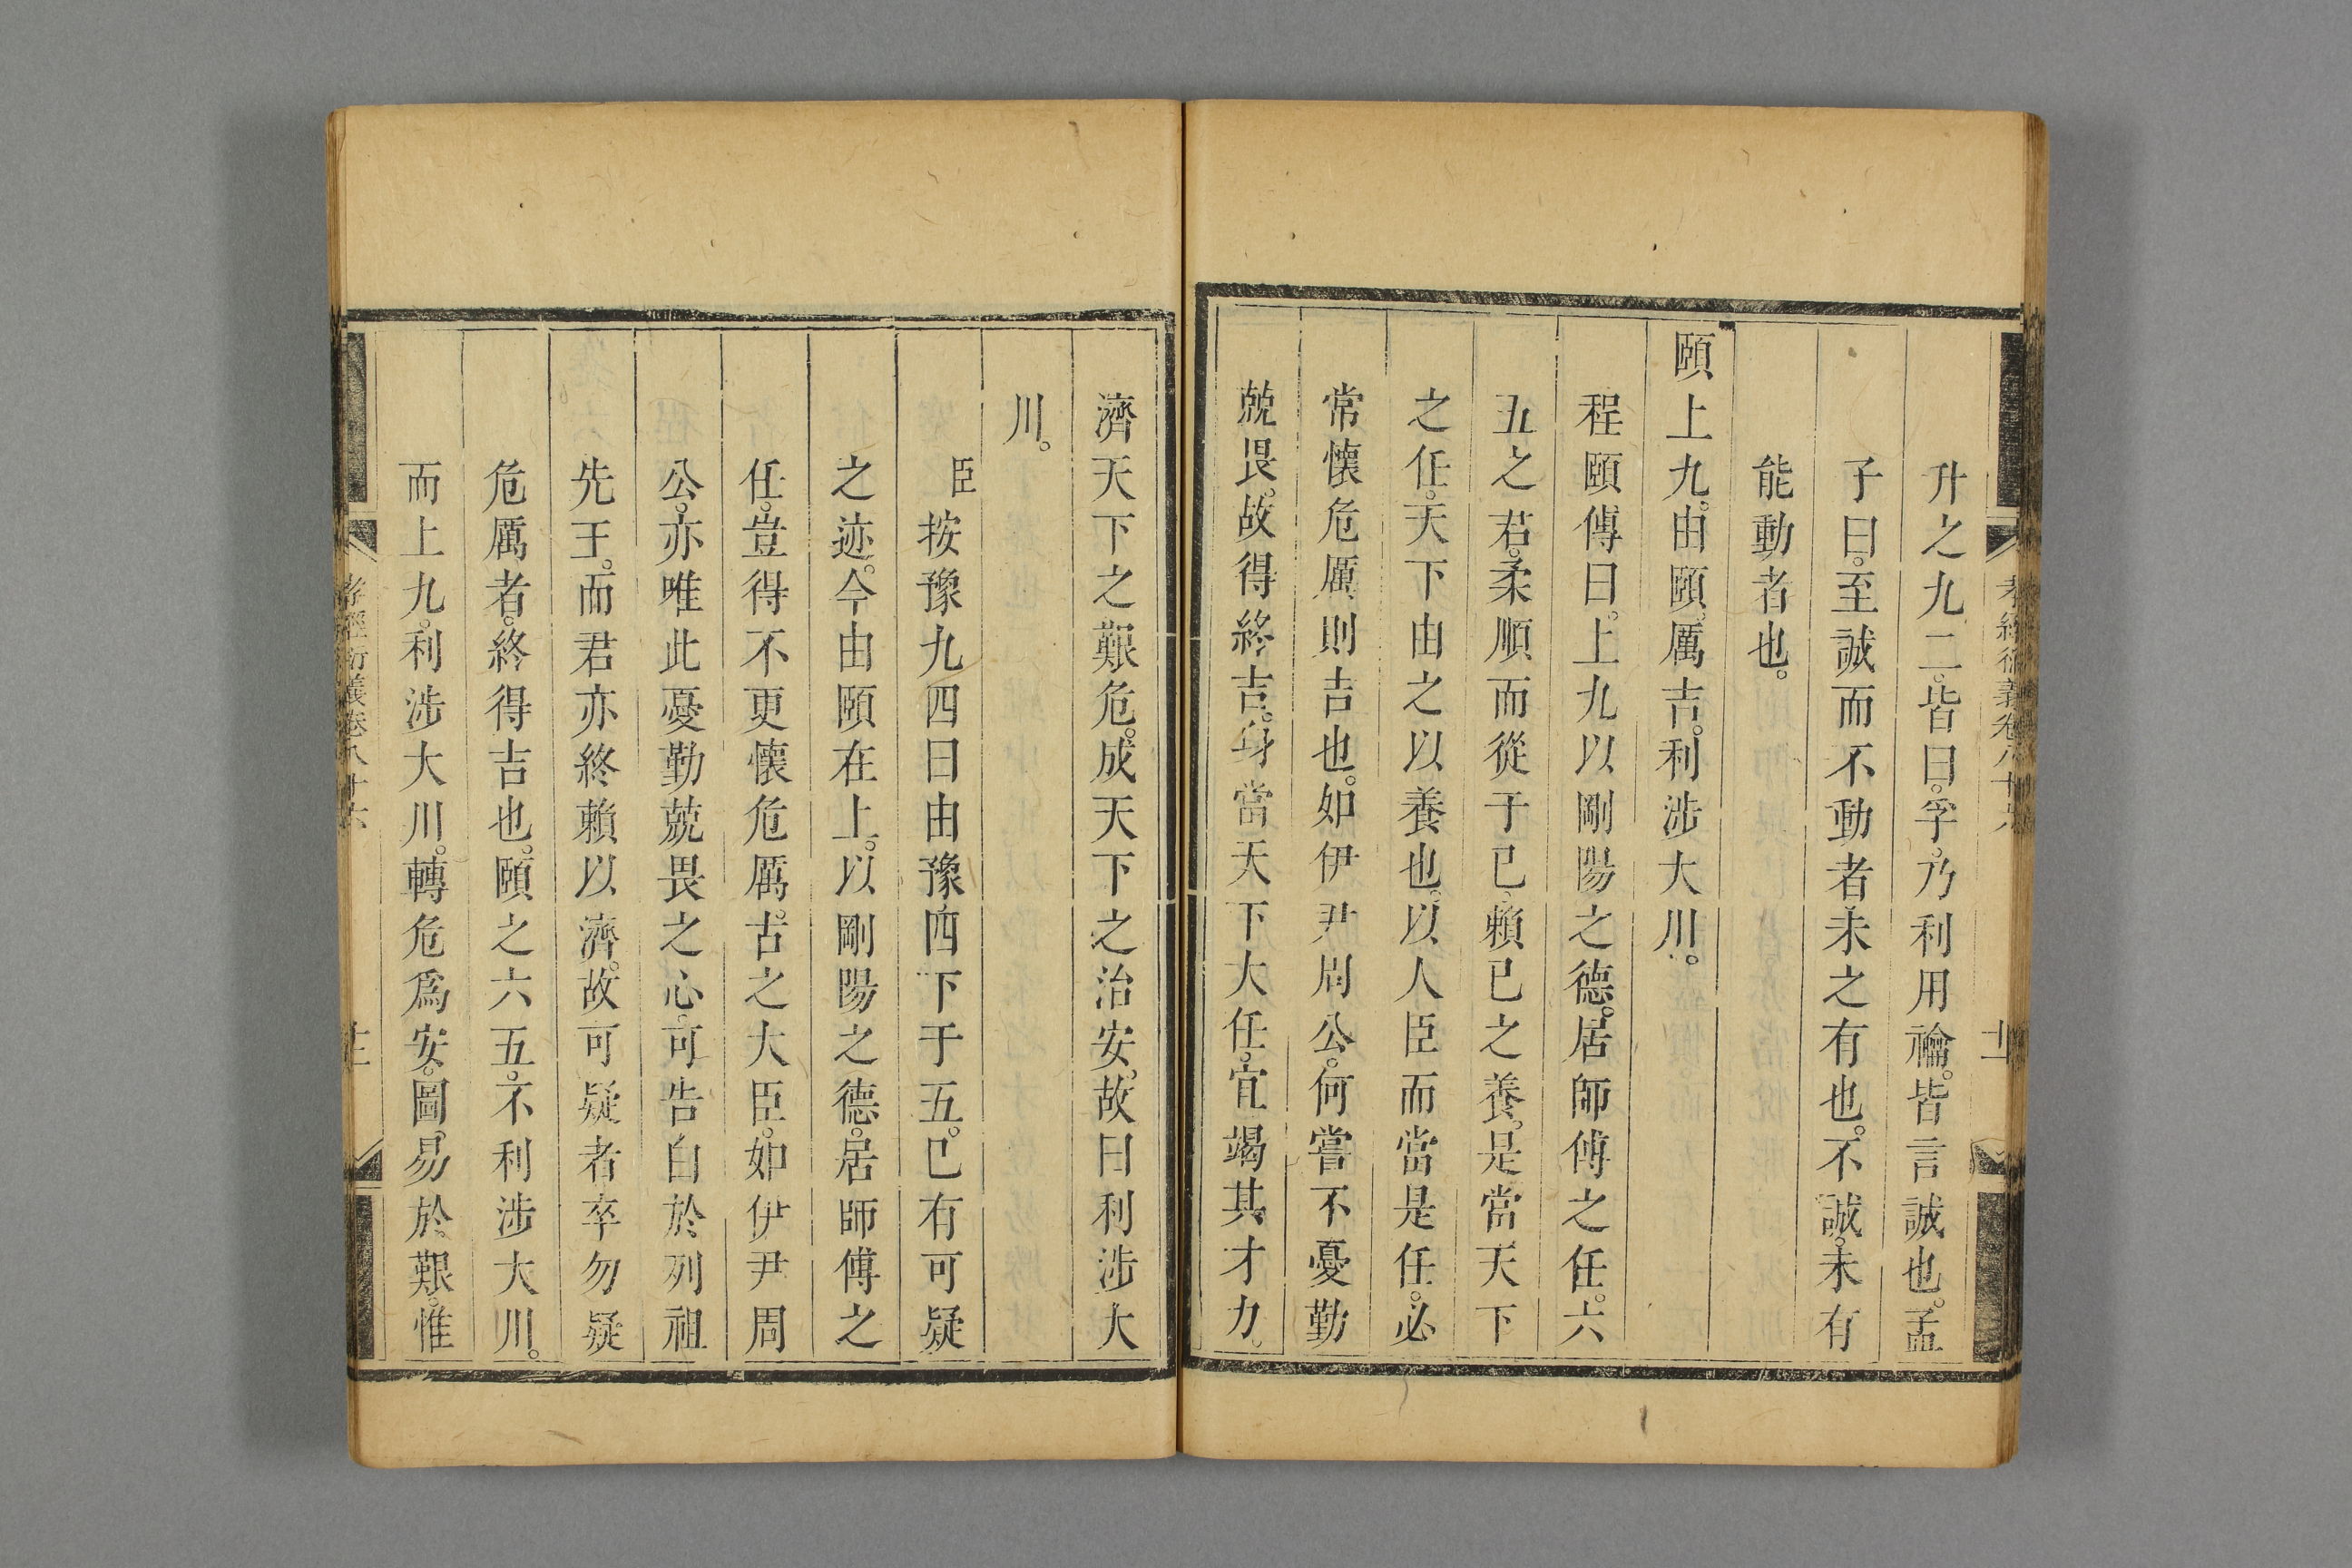 孝經衍義卷八十六
十一
升之九二。皆曰。孚。乃利用禴。皆言誠也。孟
子曰。至誠而不動者。未之有也。不誠。未有
能動者也。
頤上九。由頤。厲吉。利涉大川。
程頤傳曰。上九以剛陽之德。居師傅之任。六
五之君。柔順而從于已。賴已之養。是當天下
之任。天下由之以養也。以人臣而當是任。必
常懷危厲則吉也。如伊尹周公。何嘗不憂勤
兢畏。故得終吉。身當天下大任。宜竭其才力。
濟天下之艱危。成天下之治安。故曰利涉大
川。
臣按豫九四曰由豫。四下于五。已有可疑
之迹。今由頤在上。以剛陽之德。居師傅之
任。豈得不更懷危厲。古之大臣。如伊尹周
公。亦唯此憂勤兢畏之心。可告自於列祖
先王。而君亦終賴以濟。故可疑者卒勿疑
危厲者。終得吉也。頤之六五。不利涉大川。
而上九。利涉大川。轉危爲安。圖易於艱。惟
孝經衍義卷八十六
十二